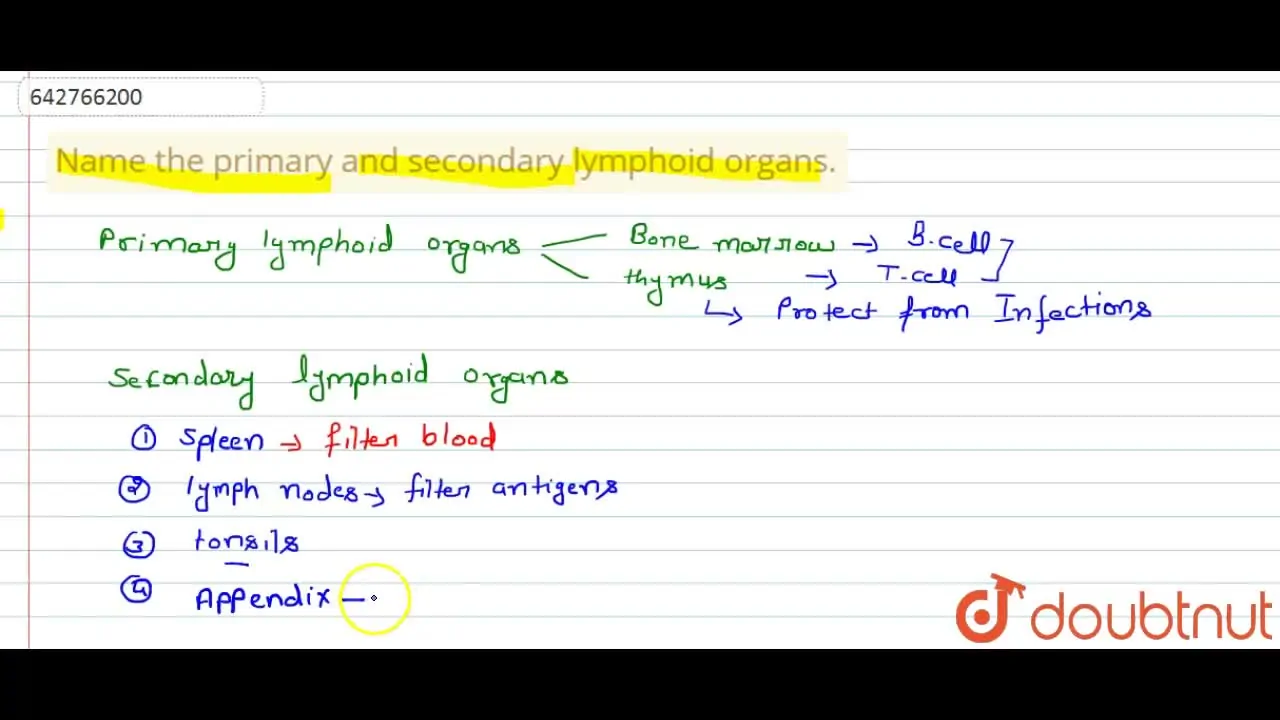 642766200
Name the primary and secondary lymphoid organs.
Primary lymphoid organs Bone marrow → B.cell
thymus → T.cell
↳ Protect from Infections
Secondary lymphoid organs
① Spleen → filter blood
② lymph nodes → filter antigens
③ tonsils
④ Appendix –
doubtnut